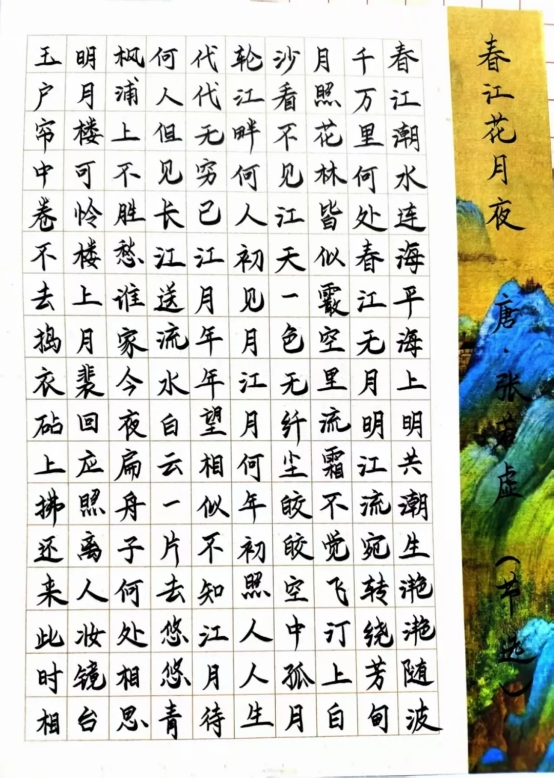 春江花月夜 唐·张若虚 （节选）
春江潮水连海平海上明共潮生滟滟随波
千万里何处春江无月明江流宛转绕芳甸
月照花林皆似霰空里流霜不觉飞汀上白
沙看不见江天一色无纤尘皎皎空中孤月
轮江畔何人初见月江月何年初照人人生
代代无穷已江月年年望相似不知江月待
何人但见长江送流水白云一片去悠悠青
枫浦上不胜愁谁家今夜扁舟子何处相思
明月楼可怜楼上月裴回应照离人妆镜台
玉户帘中卷不去捣衣砧上拂还来此时相